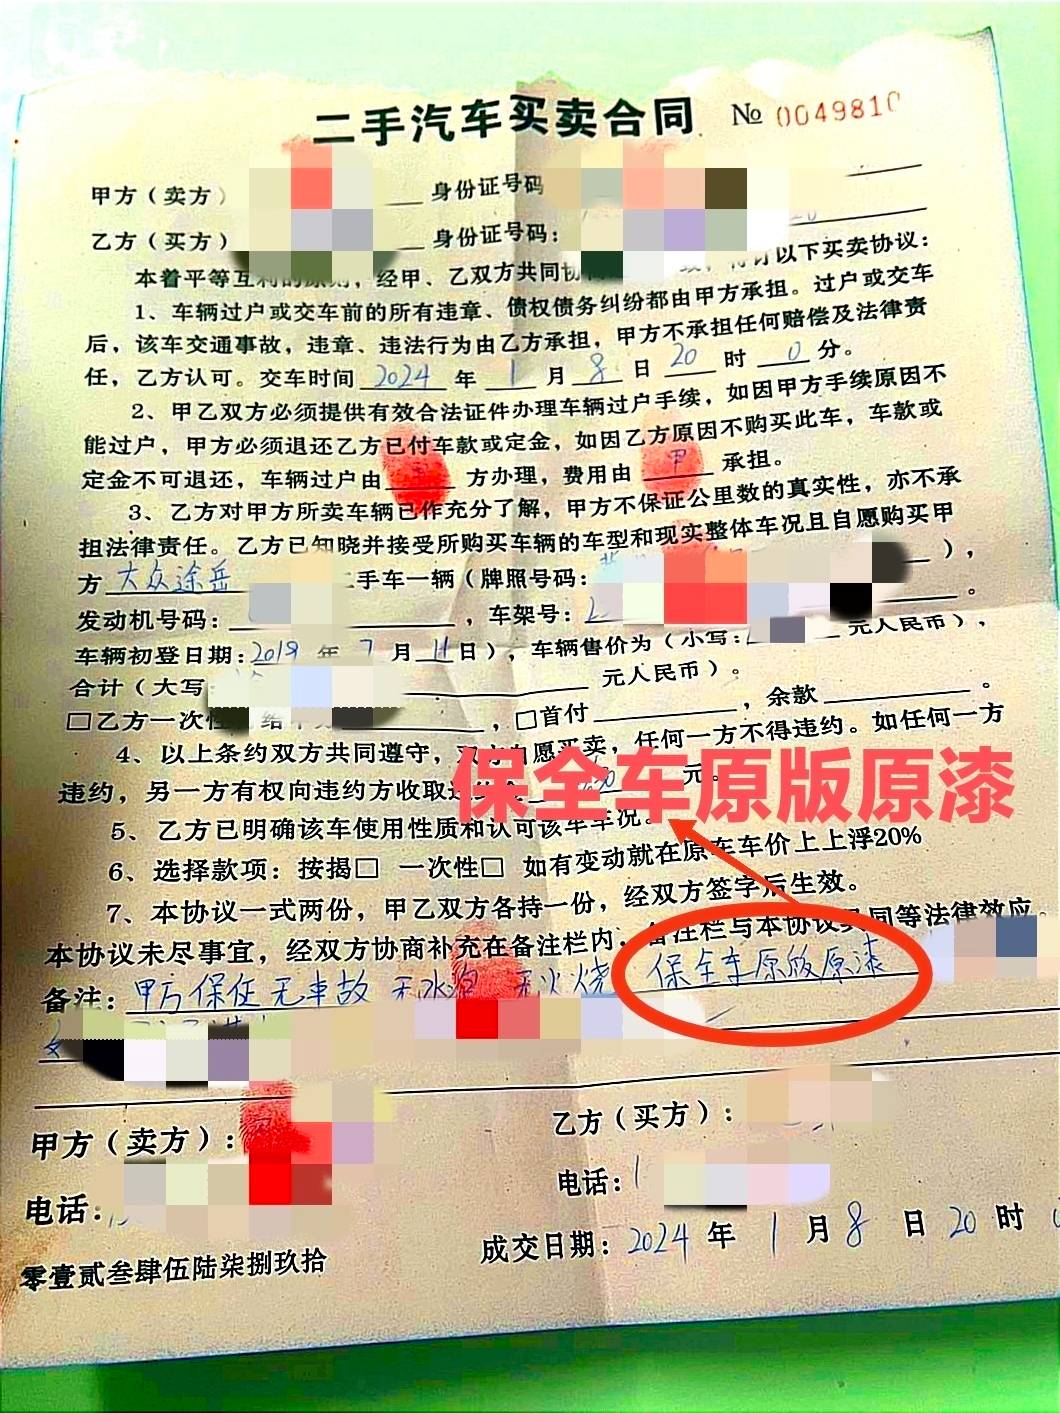 二手汽车买卖合同 № 0049810
甲方（卖方） 身份证号码
乙方（买方） 身份证号码：
本着平等互利的原则，经甲、乙双方共同协 订以下买卖协议：
1、车辆过户或交车前的所有违章、债权债务纠纷都由甲方承担。过户或交车
后，该车交通事故，违章、违法行为由乙方承担，甲方不承担任何赔偿及法律责
任，乙方认可。交车时间 2024 年 1 月 8 日 20 时 0 分。
2、甲乙双方必须提供有效合法证件办理车辆过户手续，如因甲方手续原因不
能过户，甲方必须退还乙方已付车款或定金，如因乙方原因不购买此车，车款或
定金不可退还，车辆过户由 方办理，费用由 甲 承担。
3、乙方对甲方所卖车辆已作充分了解，甲方不保证公里数的真实性，亦不承
担法律责任。乙方已知晓并接受所购买车辆的车型和现实整体车况且自愿购买甲
方 大众途岳 二手车一辆（牌照号码： ），
发动机号码： ，车架号： 。
车辆初登日期：2019 年 7 月 日），车辆售价为（小写： 元人民币），
合计（大写： 元人民币）。
□乙方一次性 给甲方 ，□首付 ，余款 。
4、以上条约双方共同遵守，双方自愿买卖，任何一方不得违约。如任何一方
违约，另一方有权向违约方收取违约金 元。
保全车原版原漆
5、乙方已明确该车使用性质和认可该车车况。
6、选择款项：按揭□ 一次性□ 如有变动就在原车车价上上浮20%
7、本协议一式两份，甲乙双方各持一份，经双方签字后生效。
本协议未尽事宜，经双方协商补充在备注栏内，备注栏与本协议共同等法律效应。
备注：甲方保任无事故 无水泡 无火烧 保全车原版原漆
甲方（卖方）：
乙方（买方）：
电话：
电话：1
成交日期：2024 年 1 月 8 日 20 时
零壹贰叁肆伍陆柒捌玖拾